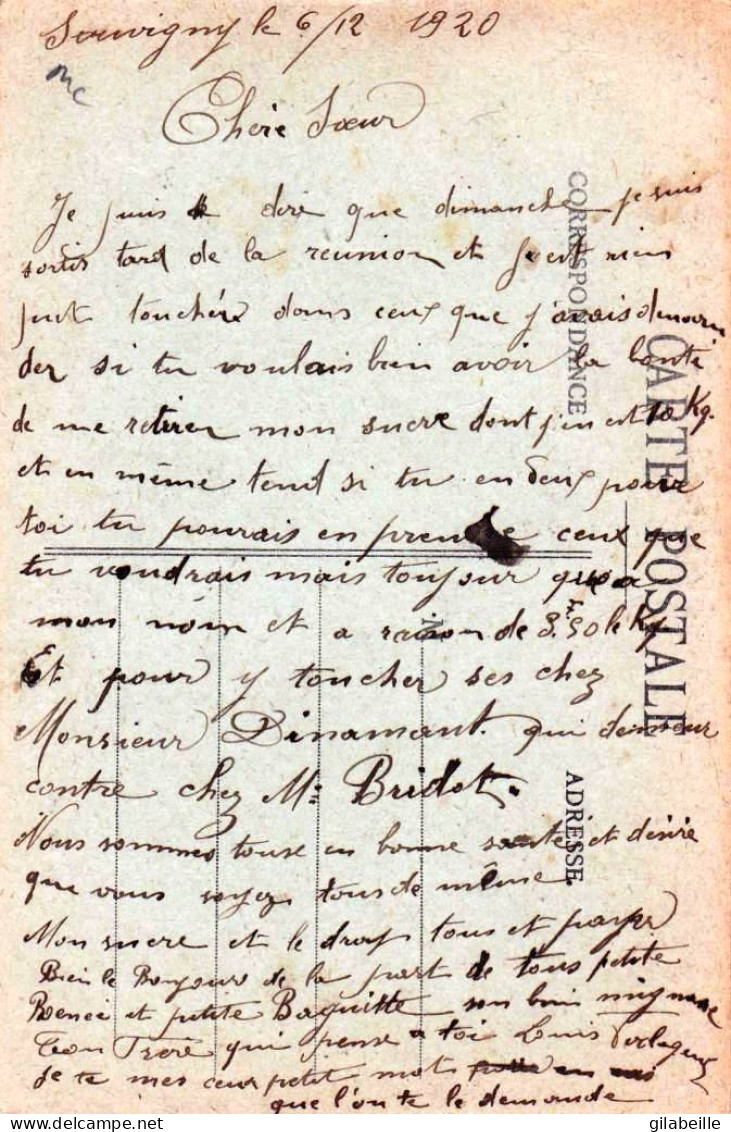 Souvigny le 6/12 1920
mc
Chère Sœur
Je puis dire que dimanche je suis
sortis tard de la reunion et rien
put touchér dans ceux que j'avais deman
der si tu voulais bien avoir la bonté
de me retirer mon sucre dont j'en est 10 Kg.
et en même tend si tu en deux pour
toi tu pourais en prendre ceux que
tu voudrais mais toujour que a
mon nom et a raison de 3F.50 le Kg
Et pour y toucher ses chez
Monsieur Dinamant. qui demeur
contre chez Mr Bridot.
Nous sommes touse en bonne santé et désire
que vous soyez tous de même
Mon sucre et le drap tous et payer
Bien le Bonjour de la part de tous petite
Renei et petite Baguitte son bien mignone
Ton Frère qui pense a toi Louis
de te mes ceux petit mot
que l'on te le demande
CORRESPONDANCE
CARTE POSTALE
M
ADRESSE
©gilabeille